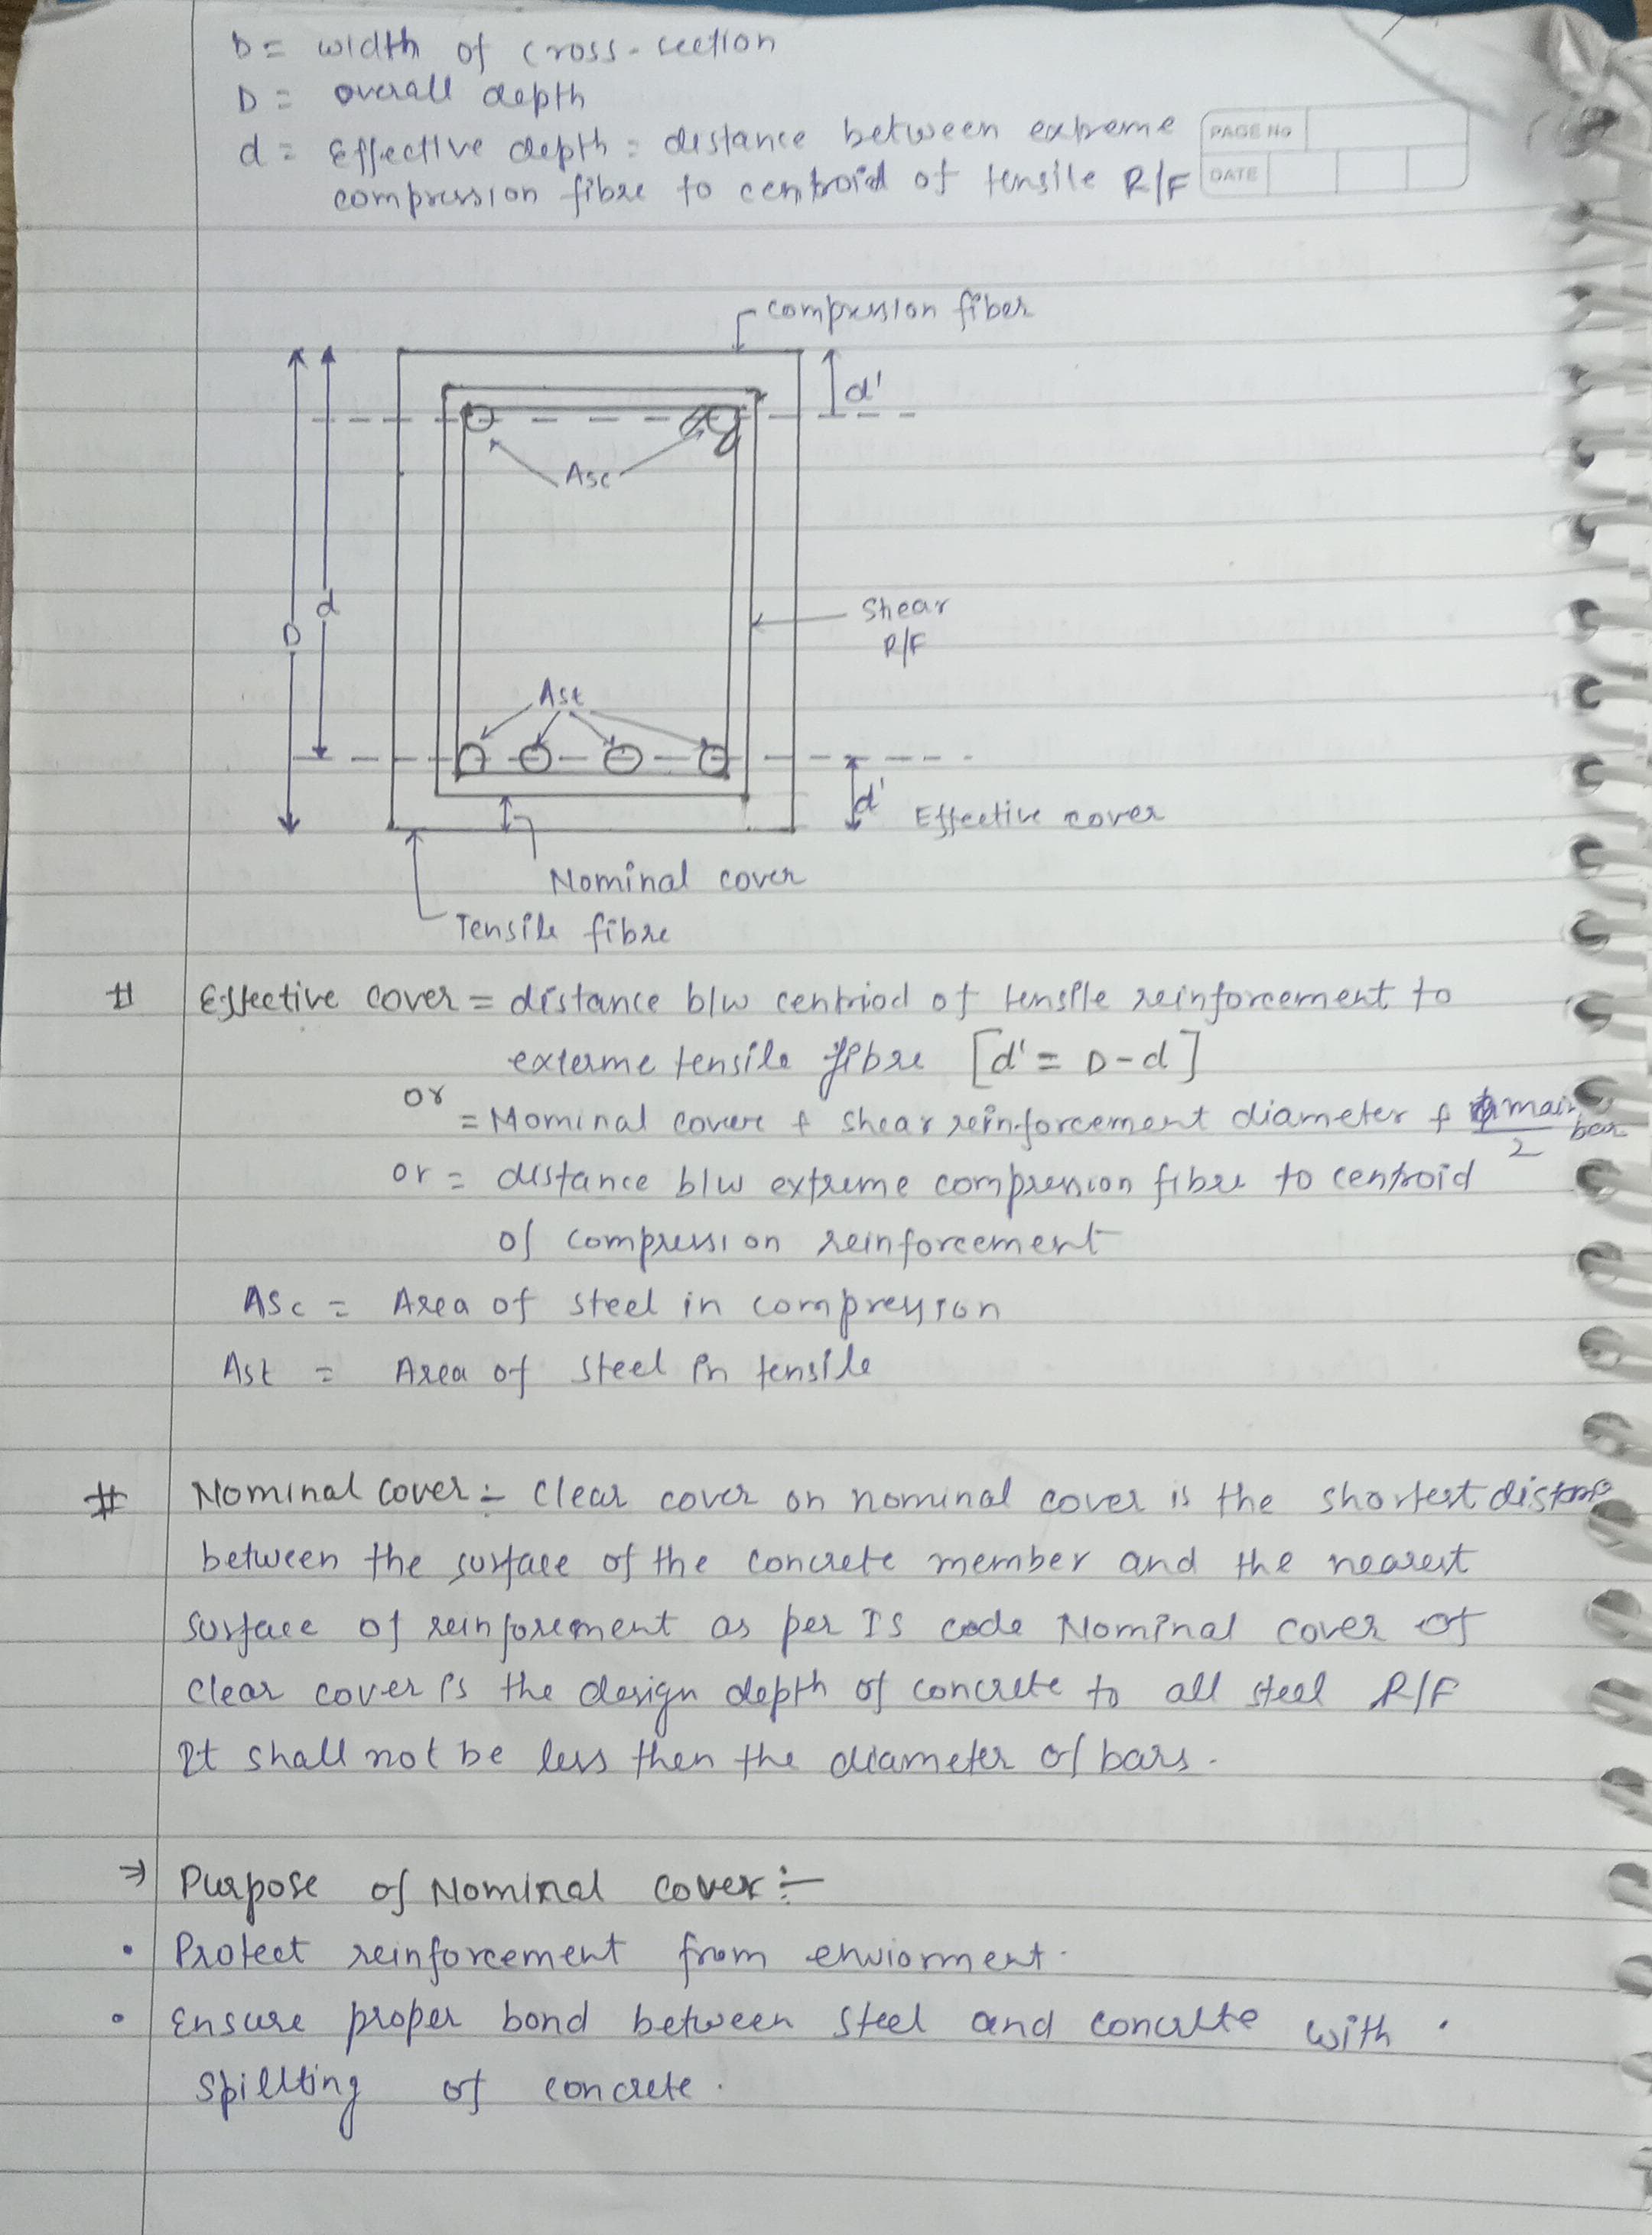 b = width of cross-section
D = overall depth
d = Effective depth = distance between extreme
compression fibre to centroid of tensile R/F
PAGE No
DATE
compression fiber
d'
Asc
D
d
Shear
R/F
Ast
d' Effective cover
Nominal cover
Tensile fibre
# Effective cover = distance b/w centriod of tensile reinforcement to
exterme tensile fibre [d' = D-d]
or = Nominal covere + shear reinforcement diameter + ϕmain bar/2
or = distance b/w extreme compression fibre to centroid
of compression reinforcement
ASc = Area of steel in compression
Ast = Area of steel in tensile
# Nominal cover :- Clear cover on nominal cover is the shortest distance
between the surface of the concrete member and the nearest
surface of reinforement as per IS code Nominal cover of
clear cover is the design depth of concrete to all steel R/F
It shall not be less then the diameter of bars.
⇒ Purpose of Nominal cover :-
• Protect reinforcement from enviorment.
• Ensure proper bond between steel and concrete with .
spillting of concrete.